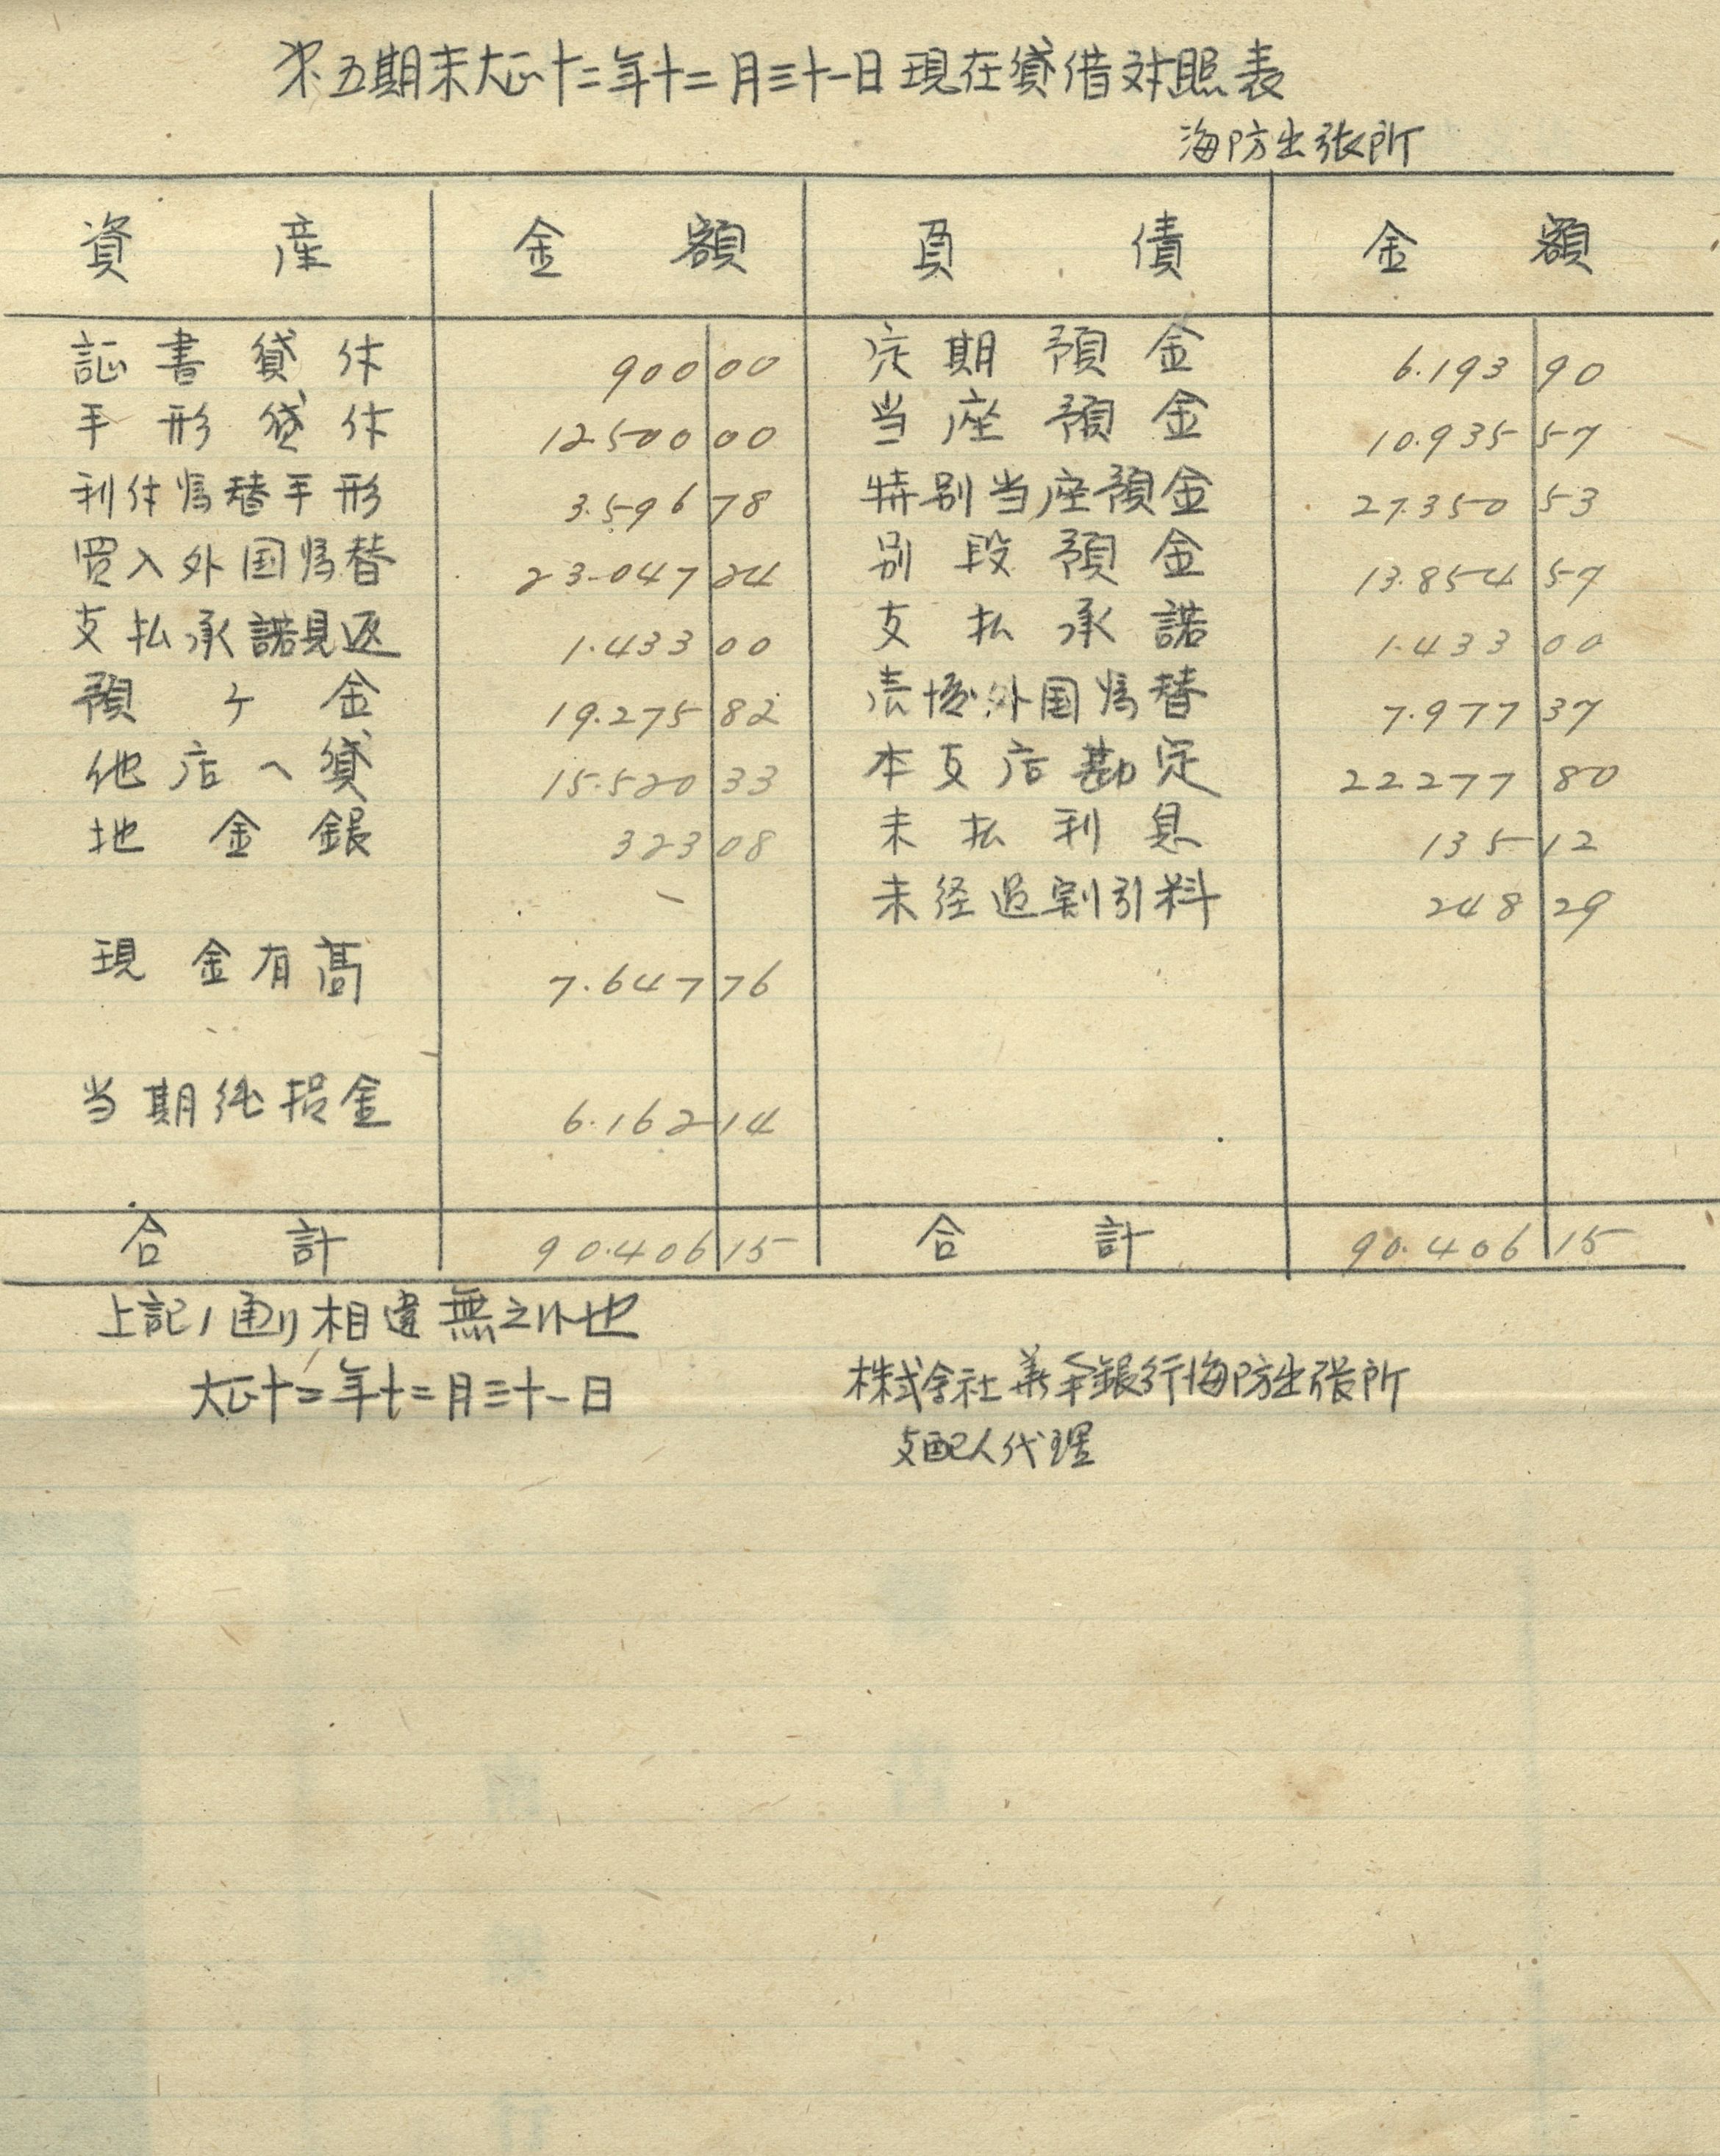 第五期末大正十二年十二月三十一日現在貸借対照表
海防出張所
資産 金額 負債 金額
証書貸付 900 00 定期預金 6.193 90
手形貸付 12500 00 当座預金 10.935 57
利付為替手形 3.596 78 特別当座預金 27.350 53
買入外国為替 23.047 24 別段預金 13.854 57
支払承諾見返 1.433 00 支払承諾 1.433 00
預ケ金 19.275 82 売渡外国為替 7.977 37
他店へ貸 15.520 33 本支店勘定 22277 80
地金銀 323 08 未払利息 135 12
未経過割引料 248 29
現金有高 7.647 76
当期純損金 6.162 14
合計 90.406 15 合計 90.406 15
上記ノ通リ相違無之候也
大正十二年十二月三十一日
株式会社華南銀行海防出張所
支配人代理